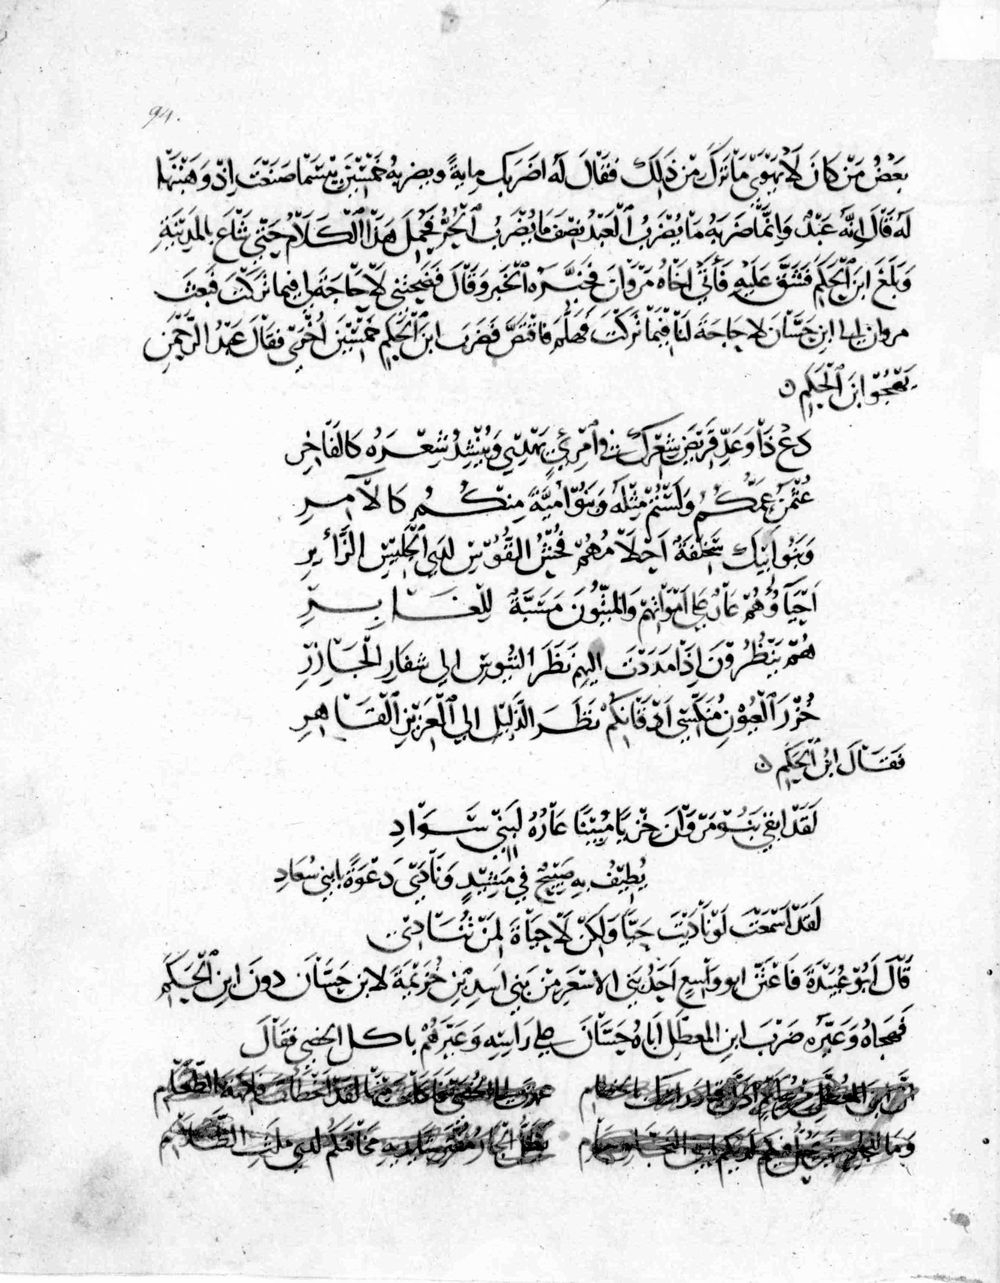 94.
بَعْضُ مَنْ كانَ لَا يَهْوَى مَا تَرَكَ مِنْ ذَلِكَ فقَالَ لَهُ اضرَبَك مِايةً ويضربه خَمْسِينَ بِئْسَمَا صَنَعْتَ اِذْ وَهَبْتَهَا
لَه قَالَ اِنَّهُ عَبْدٌ وَاِنَّمَا ضَرَبهُ مَا يُضْرَبُ الْعَبْدُ نِصْفَ مَا يُضْرَبُ الْحُرُّ فَحُمِلَ هَذَا الْكَلَامُ حَتَّى شَاعَ بِالْمَدِينَةِ
وَبَلَغَ ابنَ الْحَكَمِ فَشَقَّ عَلَيْهِ فَأتَى اخَاهُ مَرْوَانَ فَخَبَّرَهُ الخَبَر وَقَالَ فَضَحْتَنِى لَا حَاجَةَ لِى فِيمَا تَرَكْتَ فَبَعَثَ
مروان الى ابنِ حَسَّانَ لا حاجة لَنَا فِيمَا تَرَكْتَ فَهَلُمَّ فَاقْتَصَّ فَضَرَبَ ابنَ الْحَكَمِ خَمْسِينَ اُخْرَى فقال عَبْدُ الرَّحْمَنِ
يَهْجُو ابنَ الْحَكَمِ
دَعْ ذَا وَعَدِّ قَرِيضَ شِعْرِكَ فِى امْرِئٍ يَهْذِى وَيُنْشِدُ شِعْرَهُ كَالْفَاخِرِ
عُثْمَنُ عَمُّكُمُ وَلَسْتُمْ مِثْلَهُ وَبَنُو اُمَيَّةَ مِنْكُمُ كَالْآمِرِ
وَبَنُو ابِيكَ سَخِيفَةٌ احْلَامُهُمْ فُحُشُ النُّفُوسِ لَدَى الْجَلِيسِ الزَّائِرِ
اَحْيَاؤُهُمْ عَارٌ عَلَى اَمْوَاتِهِمْ وَالمَيِّتُونَ مَسَبَّةٌ لِلْغَابِرِ
هُمْ يَنْظُرُونَ اِذَا مَدَدْتَ اليهِمُ نَظَرَ التُّيُوسِ الى شِفَارِ الْجَازِرِ
خُزْرَ الْعُيُونِ مُنَكِّسِى اَذْقَانِكُمْ نَظَرَ الذَّلِيلِ الى الْعَزِيزِ الْقَاهِرِ
فَقَالَ ابْنُ الْحَكَمِ
لَقَدْ ابْقَى بَنُو مَرْوَانَ حُزْنًا مُبِينًا عَارُهُ لِبَنِى سَوَادِ
يُطِيفُ بِهِ صَبِيحٌ فِى مَشِيدٍ وَنَادَى دَعْوَةً يا بنى سُعَادِ
لَقَدْ اَسْمَعْتَ لَوْ نَادَيْتَ حَيًّا وَلَكِنْ لَا حَيَاةَ لِمَنْ تُنَادِى
قَالَ اَبُو عُبَيْدَةَ فَاعْتَنَّ ابو وَاسِعٍ اَحَدُ بَنِى الاسْعَرِ مِنْ بَنِى اَسَدِ بْنِ خُزَيْمَةَ لابن حَسَّانَ دونَ ابنِ الْحَكَمِ
فَهَجَاهُ وَعَيَّرَه ضَرْبَ ابنِ المعطّل اَبَاهُ حَسَّانَ على رَاسِهِ وَعَيَّرَهُمْ باكل الخصى فقَالَ